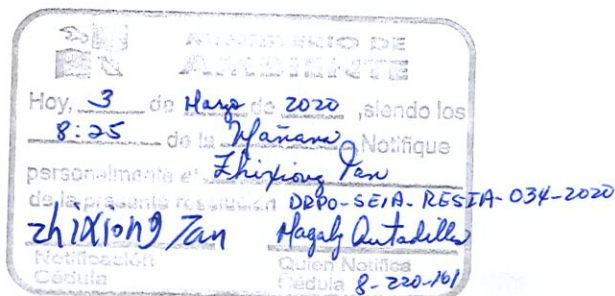 MINISTERIO DE
AMBIENTE
Hoy, 3 de Marzo de 2020, siendo los
8:25 de la Mañana Notifique
personalmente a Zhixiong Tan
de la presente resolución DRPO-SEIA-RESIA-034-2020
zhiXiong Tan Magaly
Notificación Quien Notifica
Cédula Cédula 8-220-161